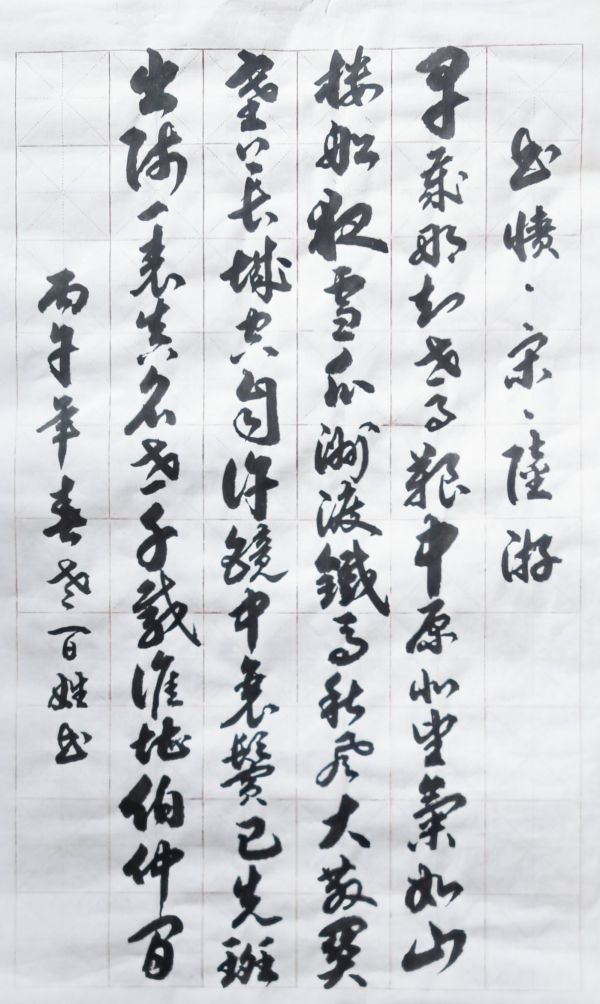 书憤、宋、陸游
早歲那知世事艱中原北望氣如山
楼船夜雪瓜洲渡鐵马秋风大散関
塞上長城空自许鏡中衰鬓已先斑
出师一表真名世千載谁堪伯仲间
丙午年春老百姓书